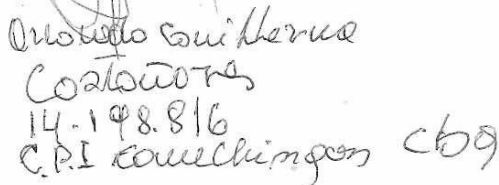 Orlando Guillermo
Castañares
14.198.816
C.P.I Comechingon cba